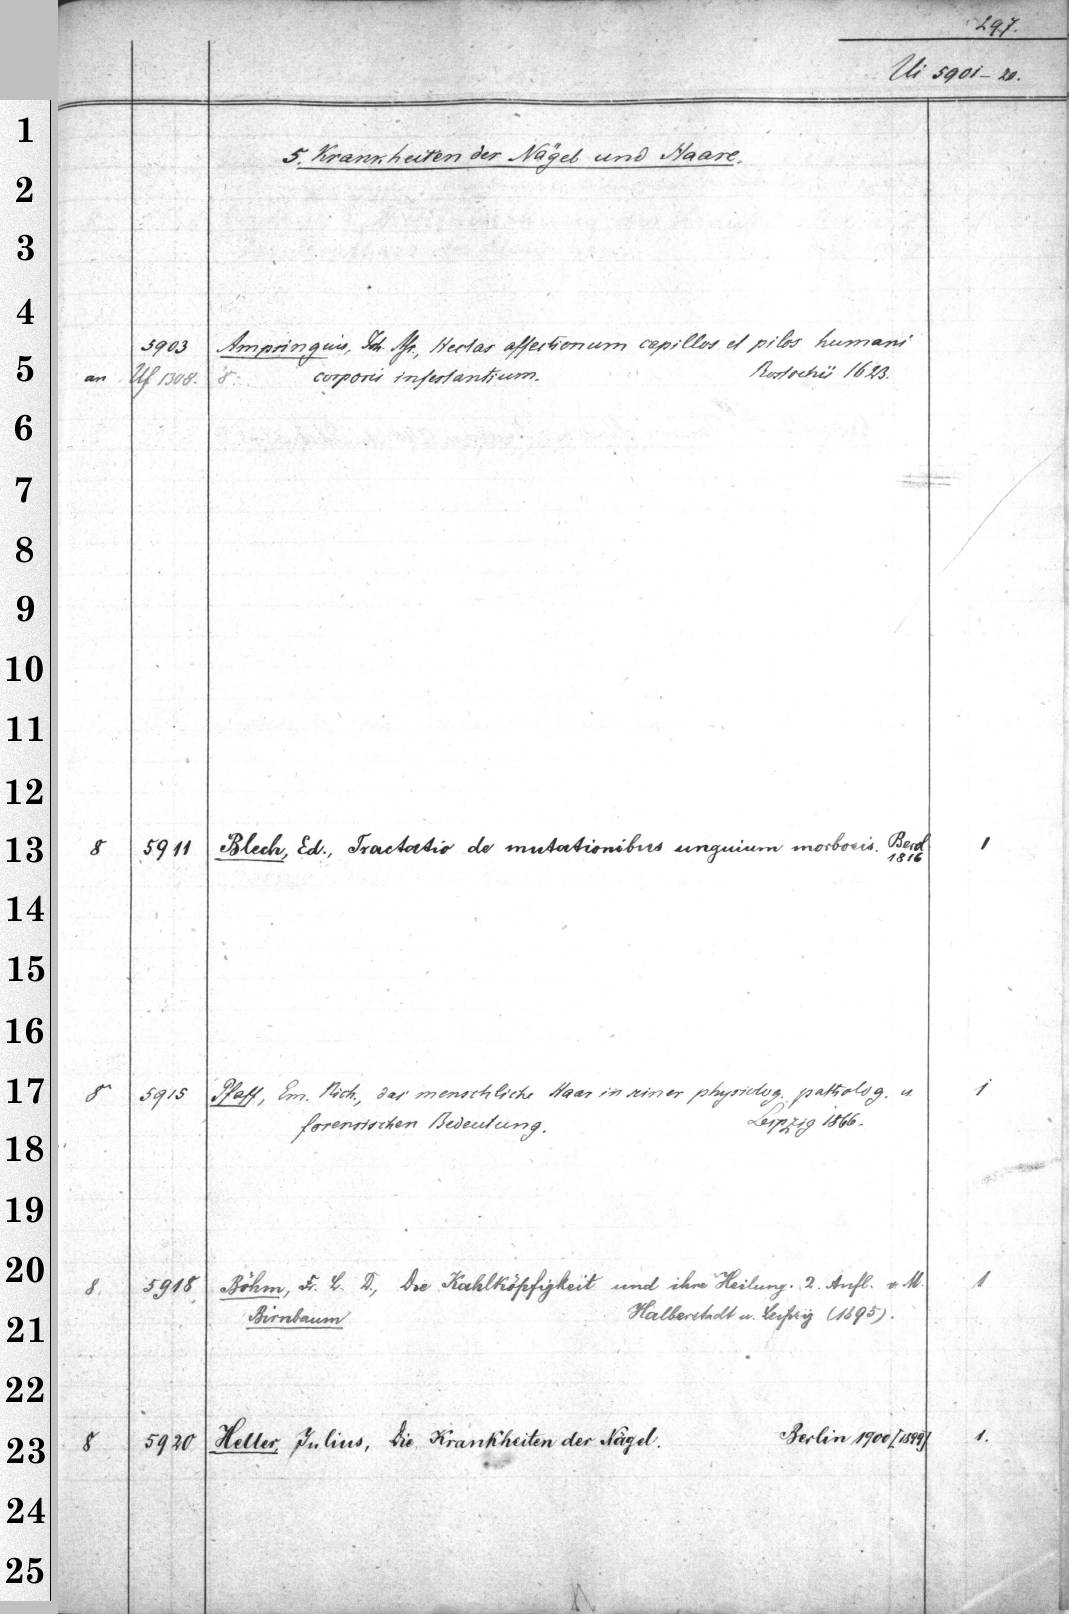 297.
Ui 5901-20.
1
5. Krankheiten der Nägel und Haare.
2
3
4
5903 Ampringius, Joh. Nectar affectionum capillos et pilos humani
5 an Uf 1308. 8. corporis infestantium. Rostochii 1623.
6
7
8
9
10
11
12
13 8 5911 Blech, Ed., Tractatio de mutationibus unguium morbosis. Berol 1
1816
14
15
16
17 8 5915 Pfaff, Em. Rich., das menschliche Haar in seiner physiolog. patholog. u. 1
forensischen Bedeutung. Leipzig 1866.
18
19
20 8. 5918 Böhm, Fr. L. D., Die Kahlköpfigkeit und ihre Heilung. 2. Aufl. v. M. 1
21 Birnbaum Halberstadt u. Leipzig (1895).
22
23 8 5920 Heller, Julius, Die Krankheiten der Nägel. Berlin 1900 [1899] 1.
24
25